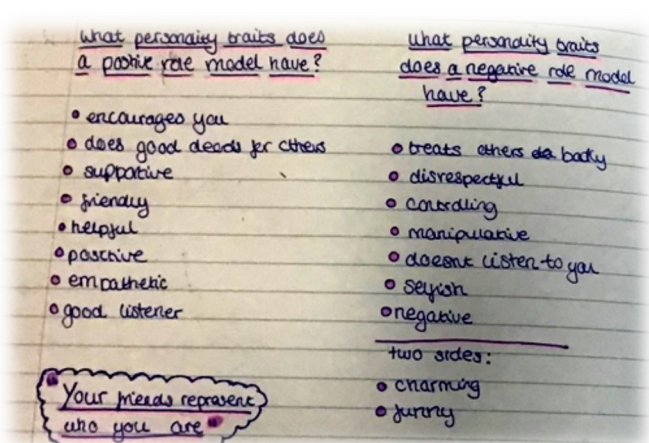 What personality traits does
a positive role model have?
• encourages you
• does good deeds for others
• supportive
• friendly
• helpful
• positive
• empathetic
• good listener
"Your friends represent
who you are"
What personality traits
does a negative role model
have?
• treats others badly
• disrespectful
• controlling
• manipulative
• doesnt listen to you
• selfish
• negative
two sides:
• charming
• funny